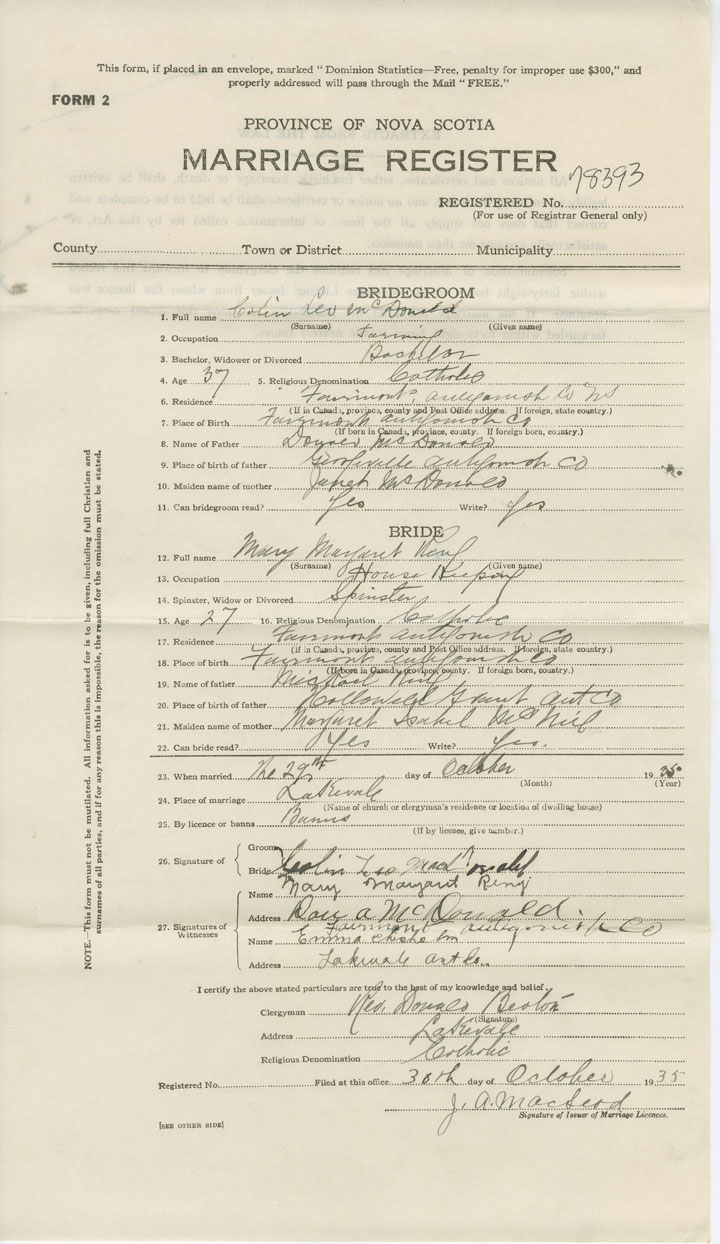 This form, if placed in an envelope, marked "Dominion Statistics—Free, penalty for improper use $300," and
properly addressed will pass through the Mail "FREE."
FORM 2
PROVINCE OF NOVA SCOTIA
MARRIAGE REGISTER
REGISTERED No. 78393
(For use of Registrar General only)
County Town or District Municipality
BRIDEGROOM
1. Full name Colin Leo McDonald
(Surname) (Given name)
2. Occupation Farming
3. Bachelor, Widower or Divorced Bachelor
4. Age 37 5. Religious Denomination Catholic
6. Residence Fairmont, Antigonish Co NS
(If in Canada, province, county and Post Office address. If foreign, state country.)
7. Place of Birth Fairmont Antigonish Co
(If born in Canada, province, county. If foreign born, country.)
8. Name of Father Donald McDonald
9. Place of birth of father Georgeville Antigonish Co
10. Maiden name of mother Janet McDonald
11. Can bridegroom read? Yes Write? Yes
BRIDE
12. Full name Mary Margaret
(Surname) (Given name)
13. Occupation House Keeping
14. Spinster, Widow or Divorced Spinster
15. Age 27 16. Religious Denomination Catholic
17. Residence Fairmont Antigonish Co
(If in Canada, province, county and Post Office address. If foreign, state country.)
18. Place of birth Fairmont Antigonish Co
(If born in Canada, province, county. If foreign born, country.)
19. Name of father Michael
20. Place of birth of father Grant Ant Co
21. Maiden name of mother Margaret Isabel McNeil
22. Can bride read? Yes Write? Yes.
23. When married The 29th day of October 1935
(Month) (Year)
24. Place of marriage Lakevale
(Name of church or clergyman's residence or location of dwelling house)
25. By licence or banns Banns
(If by licence, give number.)
26. Signature of
Groom Colin Leo MacDonald
Bride Mary Margaret
27. Signatures of Witnesses
Name a McDonald.
Address Fairmont Antigonish Co
Name Emma Chisholm
Address Lakevale Ant Co.
I certify the above stated particulars are true to the best of my knowledge and belief.
Clergyman Rev. Donald Beaton
(Signature)
Address Lakevale
Religious Denomination Catholic
Registered No. Filed at this office 30th day of October 1935
J. A. MacLeod
Signature of Issuer of Marriage Licences.
[SEE OTHER SIDE]
NOTE.—This form must not be mutilated. All information asked for is to be given, including full Christian and
surnames of all parties, and if for any reason this is impossible, the reason for the omission must be stated.